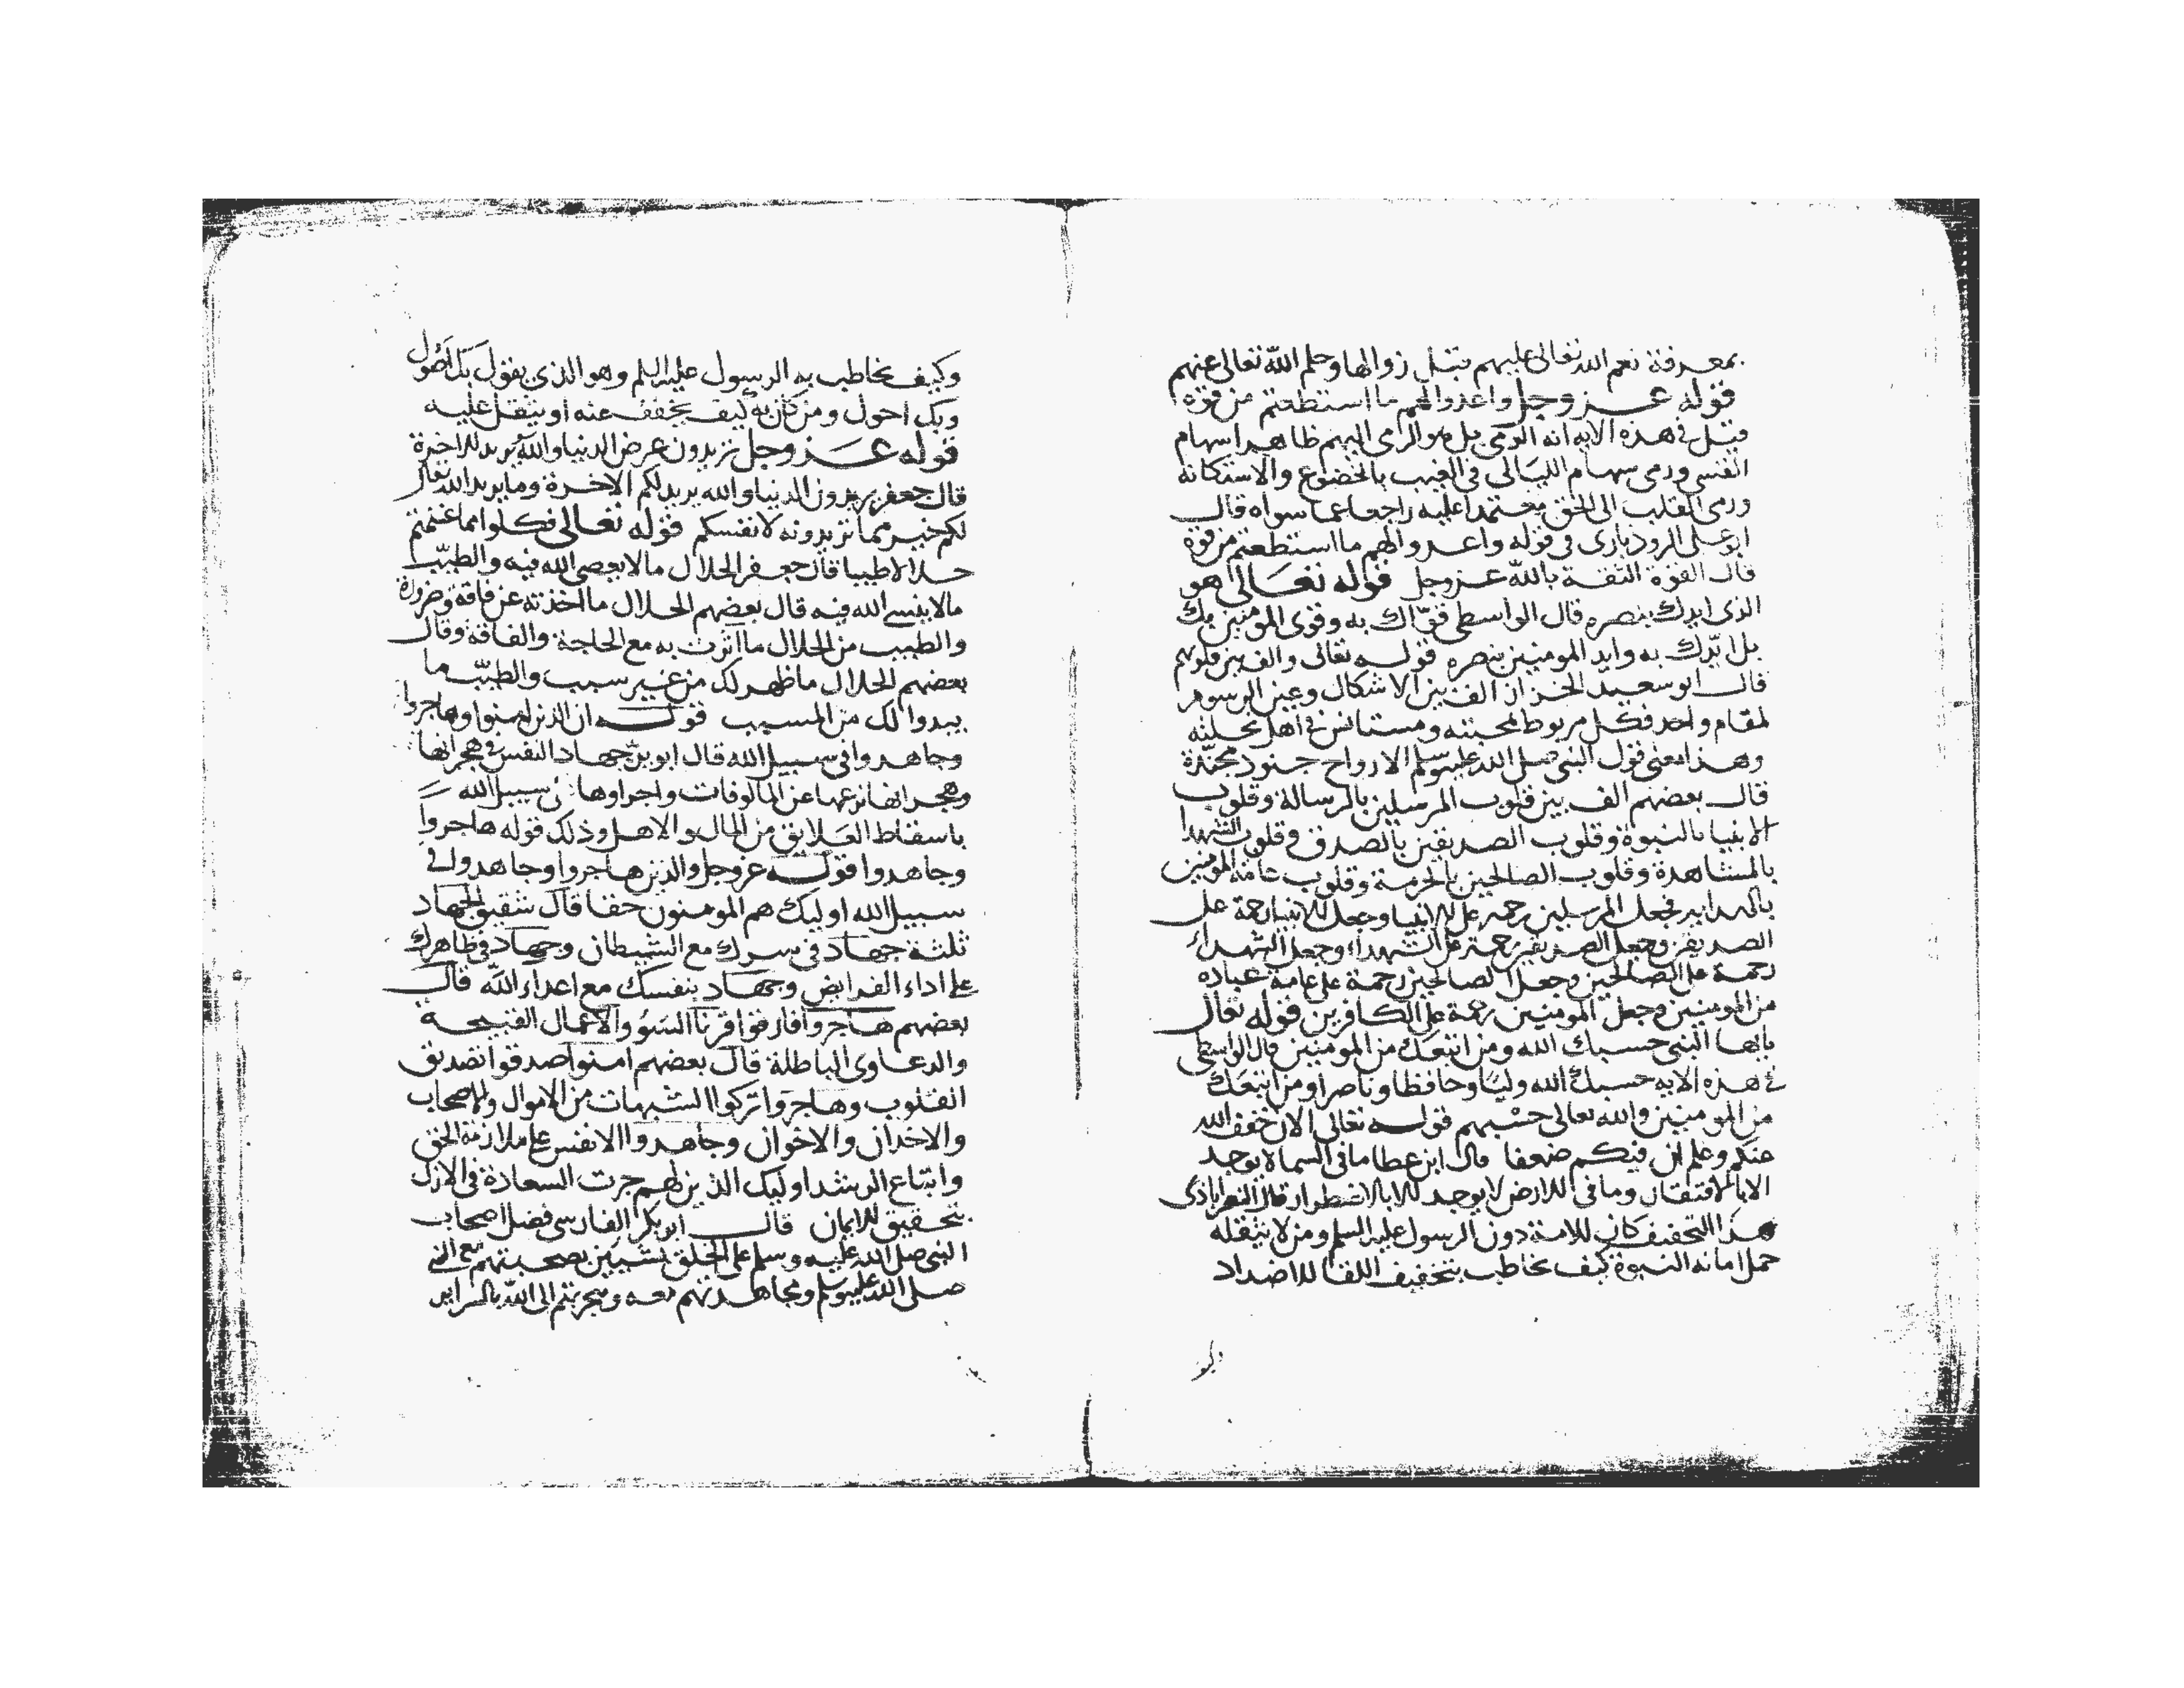 بمعرفة نعم الله تعالى عليهم قبل زوالها وحلم الله تعالى عنهم
قوله عز وجل واعدوا لهم ما استطعتم من قوة
قيل في هذه الايه انه الرمى بل هو الرمى اليهم ظاهرا سهام
القسى ورمى سهام الليالى فى الغيب بالخضوع والاستكانة
ورمى القلب الى الحق معتمدا عليه راجعا عما سواه قال
ابو على الروذبارى فى قوله واعدوا لهم ما استطعتم من قوة
قال القوة الثقة بالله عز وجل قوله تعالى هو
الذى ايدك بنصره قال الواسطى قواك به وقوى المومنين بك
بل ايدك به وايد المومنين بنصره قوله تعالى والف بين قلوبهم
قال ابو سعيد الخراز الف بين الاشكال وغير الرسوم
لمقام واحد فكل مربوط بمحبته ومستانس فى اهل نحلته
وهذا معنى قول النبى صلى الله عليه وسلم الارواح جنود مجندة
قال بعضهم الف بين قلوب المرسلين بالرسالة وقلوب
الانبيا بالنبوة وقلوب الصديقين بالصدق وقلوب الشهدا
بالمشاهدة وقلوب الصالحين بالحرمة وقلوب عامة المومنين
بالهدايه فجعل المرسلين رحمة على الانبيا وجعل الانبيا رحمة على
الصديقين وجعل الصديقين رحمة على الشهداء وجعل الشهداء
رحمة على الصالحين وجعل الصالحين رحمة على عامة عباده
من المومنين وجعل المومنين رحمة على الكافرين قوله تعالى
يايها النبى حسبك الله ومن اتبعك من المومنين قال الواسطى
فى هذه الايه حسبك الله وليا وحافظا وناصرا ومن اتبعك
من المومنين والله تعالى حسبهم قوله تعالى الان خفف الله
عنكم وعلم ان فيكم ضعفا قال ابن عطا ما فى السما لا يوجد
الا بالافتقار وما فى الارض لا يوجد الا بالاضطرار قال النصراباذى
هذا التخفيف كان للامة دون الرسول عليه السلم ومن لا يثقله
حمل امانه النبوة كيف يخاطب بتخفيف اللقا للاضداد
وكيف يخاطب به الرسول عليه السلم وهو الذى يقول بك اصول
وبك احول ومن كان به كيف يخفف عنه او يثقل عليه
قوله عز وجل تريدون عرض الدنيا والله يريد الاخرة
قال جعفر يريدون الدنيا والله يريد لكم الاخرة وما يريد الله تعالى
لكم خير مما تريدونه لانفسكم قوله تعالى فكلوا مما غنمتم
حلالا طيبا قال جعفر الحلال ما لا يعصى الله فيه والطيب
ما لا ينسى الله فيه قال بعضهم الحلال ما اخذته عن فاقة وضرورة
والطيب من الحلال ما اثرت به مع الحاجة والفاقة وقال
بعضهم الحلال ما ظهر لك من غير سبب والطيب ما
يبدوا لك من المسبب قوله ان الذين امنوا وهاجروا
وجاهدوا فى سبيل الله قال ابو بن جهاد النفس فى هجرانها
وهجرانها نزعها عن المالوفات واجراوها فى سبيل الله
باسقاط العلايق من المال والاهل وذلك قوله هاجروا
وجاهدوا قوله عز وجل والذين هاجروا وجاهدوا فى
سبيل الله اوليك هم المومنون حقا قال شقيق الجهاد
ثلثة جهاد فى سرك مع الشيطان وجهاد فى ظاهرك
على اداء الفرايض وجهاد بنفسك مع اعداء الله قال
بعضهم هاجروا فارقوا قرنا السوء والاعمال القبيحة
والدعاوى الباطلة قال بعضهم امنوا صدقوا تصديق
القلوب وهاجروا تركوا الشبهات من الاموال والاصحاب
والاخدان والاخوان وجاهدوا الانفس على ملازمة الحق
واتباع الرشد اوليك الذين لهم جرت السعادة فى الازل
بتحقيق الايمان قال ابو بكر الفارسى فضل اصحاب
النبى صلى الله عليه وسلم على الخلق بشيئين بصحبتهم مع النبى
صلى الله عليه وسلم ومجاهدتهم معه وهجرتهم الى الله بالسراير